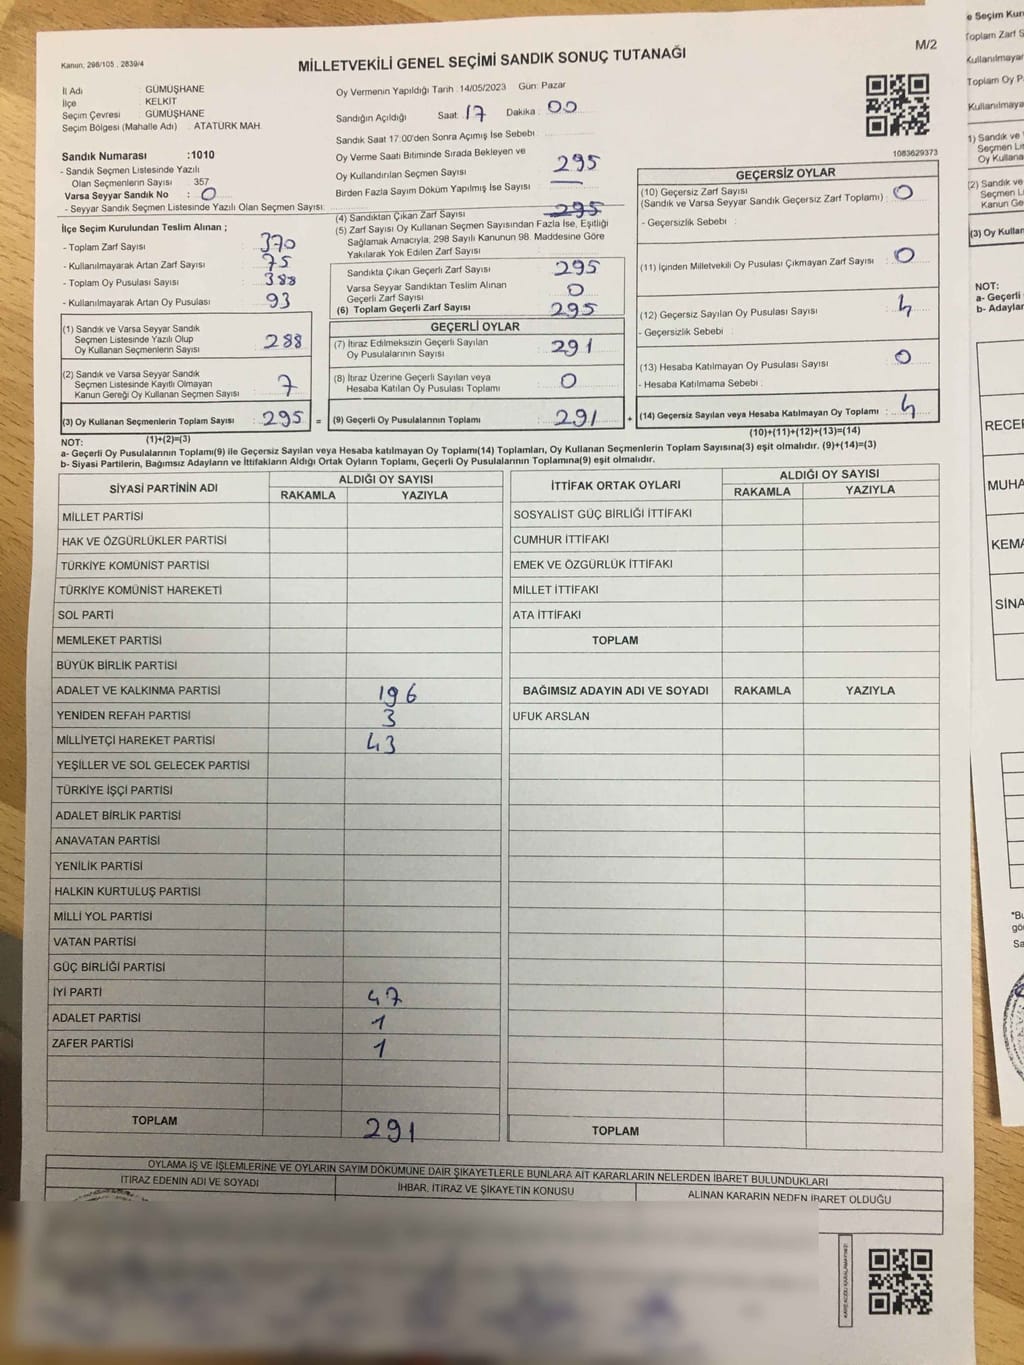 Kanun, 298/105 . 2839/4
MİLLETVEKİLİ GENEL SEÇİMİ SANDIK SONUÇ TUTANAĞI
M/2
İl Adı : GÜMÜŞHANE
İlçe : KELKİT
Seçim Çevresi : GÜMÜŞHANE
Seçim Bölgesi (Mahalle Adı) : ATATÜRK MAH.
Sandık Numarası :1010
- Sandık Seçmen Listesinde Yazılı
Olan Seçmenlerin Sayısı : 357
Varsa Seyyar Sandık No : 0
- Seyyar Sandık Seçmen Listesinde Yazılı Olan Seçmen Sayısı:
Oy Vermenin Yapıldığı Tarih :14/05/2023 Gün: Pazar
Sandığın Açıldığı Saat: 17 Dakika : 00
Sandık Saat 17:00'den Sonra Açımış İse Sebebi :
Oy Verme Saati Bitiminde Sırada Bekleyen ve
Oy Kullandırılan Seçmen Sayısı : 295
Birden Fazla Sayım Döküm Yapılmış İse Sayısı : —
1083629373
İlçe Seçim Kurulundan Teslim Alınan ;
- Toplam Zarf Sayısı : 370
- Kullanılmayarak Artan Zarf Sayısı : 75
- Toplam Oy Pusulası Sayısı : 388
- Kullanılmayarak Artan Oy Pusulası : 93
(1) Sandık ve Varsa Seyyar Sandık
Seçmen Listesinde Yazılı Olup
Oy Kullanan Seçmenlerin Sayısı : 288
(2) Sandık ve Varsa Seyyar Sandık
Seçmen Listesinde Kayıtlı Olmayan
Kanun Gereği Oy Kullanan Seçmen Sayısı : 7
(3) Oy Kullanan Seçmenlerin Toplam Sayısı : 295 =
(1)+(2)=(3)
(4) Sandıktan Çıkan Zarf Sayısı : 295
(5) Zarf Sayısı Oy Kullanan Seçmen Sayısından Fazla İse, Eşitliği
Sağlamak Amacıyla; 298 Sayılı Kanunun 98. Maddesine Göre
Yakılarak Yok Edilen Zarf Sayısı :
Sandıkta Çıkan Geçerli Zarf Sayısı : 295
Varsa Seyyar Sandıktan Teslim Alınan
Geçerli Zarf Sayısı : 0
(6) Toplam Geçerli Zarf Sayısı : 295
GEÇERLİ OYLAR
(7) İtiraz Edilmeksizin Geçerli Sayılan
Oy Pusulalarının Sayısı : 291
(8) İtiraz Üzerine Geçerli Sayılan veya
Hesaba Katılan Oy Pusulası Toplamı : 0
(9) Geçerli Oy Pusulalarının Toplamı : 291 +
GEÇERSİZ OYLAR
(10) Geçersiz Zarf Sayısı
(Sandık ve Varsa Seyyar Sandık Geçersiz Zarf Toplamı) : 0
- Geçersizlik Sebebi :
(11) İçinden Milletvekili Oy Pusulası Çıkmayan Zarf Sayısı : 0
(12) Geçersiz Sayılan Oy Pusulası Sayısı : 4
- Geçersizlik Sebebi :
(13) Hesaba Katılmayan Oy Pusulası Sayısı : 0
- Hesaba Katılmama Sebebi :
(14) Geçersiz Sayılan veya Hesaba Katılmayan Oy Toplamı : 4
(10)+(11)+(12)+(13)=(14)
NOT:
a- Geçerli Oy Pusulalarının Toplamı(9) ile Geçersiz Sayılan veya Hesaba katılmayan Oy Toplamı(14) Toplamları, Oy Kullanan Seçmenlerin Toplam Sayısına(3) eşit olmalıdır. (9)+(14)=(3)
b- Siyasi Partilerin, Bağımsız Adayların ve İttifakların Aldığı Ortak Oyların Toplamı, Geçerli Oy Pusulalarının Toplamına(9) eşit olmalıdır.
SİYASİ PARTİNİN ADI ALDIĞI OY SAYISI
RAKAMLA YAZIYLA
MİLLET PARTİSİ
HAK VE ÖZGÜRLÜKLER PARTİSİ
TÜRKİYE KOMÜNİST PARTİSİ
TÜRKİYE KOMÜNİST HAREKETİ
SOL PARTİ
MEMLEKET PARTİSİ
BÜYÜK BİRLİK PARTİSİ
ADALET VE KALKINMA PARTİSİ 196
YENİDEN REFAH PARTİSİ 3
MİLLİYETÇİ HAREKET PARTİSİ 43
YEŞİLLER VE SOL GELECEK PARTİSİ
TÜRKİYE İŞÇİ PARTİSİ
ADALET BİRLİK PARTİSİ
ANAVATAN PARTİSİ
YENİLİK PARTİSİ
HALKIN KURTULUŞ PARTİSİ
MİLLİ YOL PARTİSİ
VATAN PARTİSİ
GÜÇ BİRLİĞİ PARTİSİ
İYİ PARTİ 47
ADALET PARTİSİ 1
ZAFER PARTİSİ 1
TOPLAM 291
İTTİFAK ORTAK OYLARI ALDIĞI OY SAYISI
RAKAMLA YAZIYLA
SOSYALİST GÜÇ BİRLİĞİ İTTİFAKI
CUMHUR İTTİFAKI
EMEK VE ÖZGÜRLÜK İTTİFAKI
MİLLET İTTİFAKI
ATA İTTİFAKI
TOPLAM
BAĞIMSIZ ADAYIN ADI VE SOYADI RAKAMLA YAZIYLA
UFUK ARSLAN
TOPLAM
OYLAMA İŞ VE İŞLEMLERİNE VE OYLARIN SAYIM DÖKÜMÜNE DAİR ŞİKAYETLERLE BUNLARA AİT KARARLARIN NELERDEN İBARET BULUNDUKLARI
İTİRAZ EDENİN ADI VE SOYADI İHBAR, İTİRAZ VE ŞİKAYETİN KONUSU ALINAN KARARIN NEDEN İBARET OLDUĞU
e Seçim Kur
Toplam Zarf S
Kullanılmayar
Toplam Oy P
Kullanılmaya
1) Sandık ve
Seçmen Lis
Oy Kullana
(2) Sandık ve
Seçmen Li
Kanun Ge
(3) Oy Kullan
NOT:
a- Geçerli
b- Adaylar
RECEP
MUHA
KEMA
SİNA